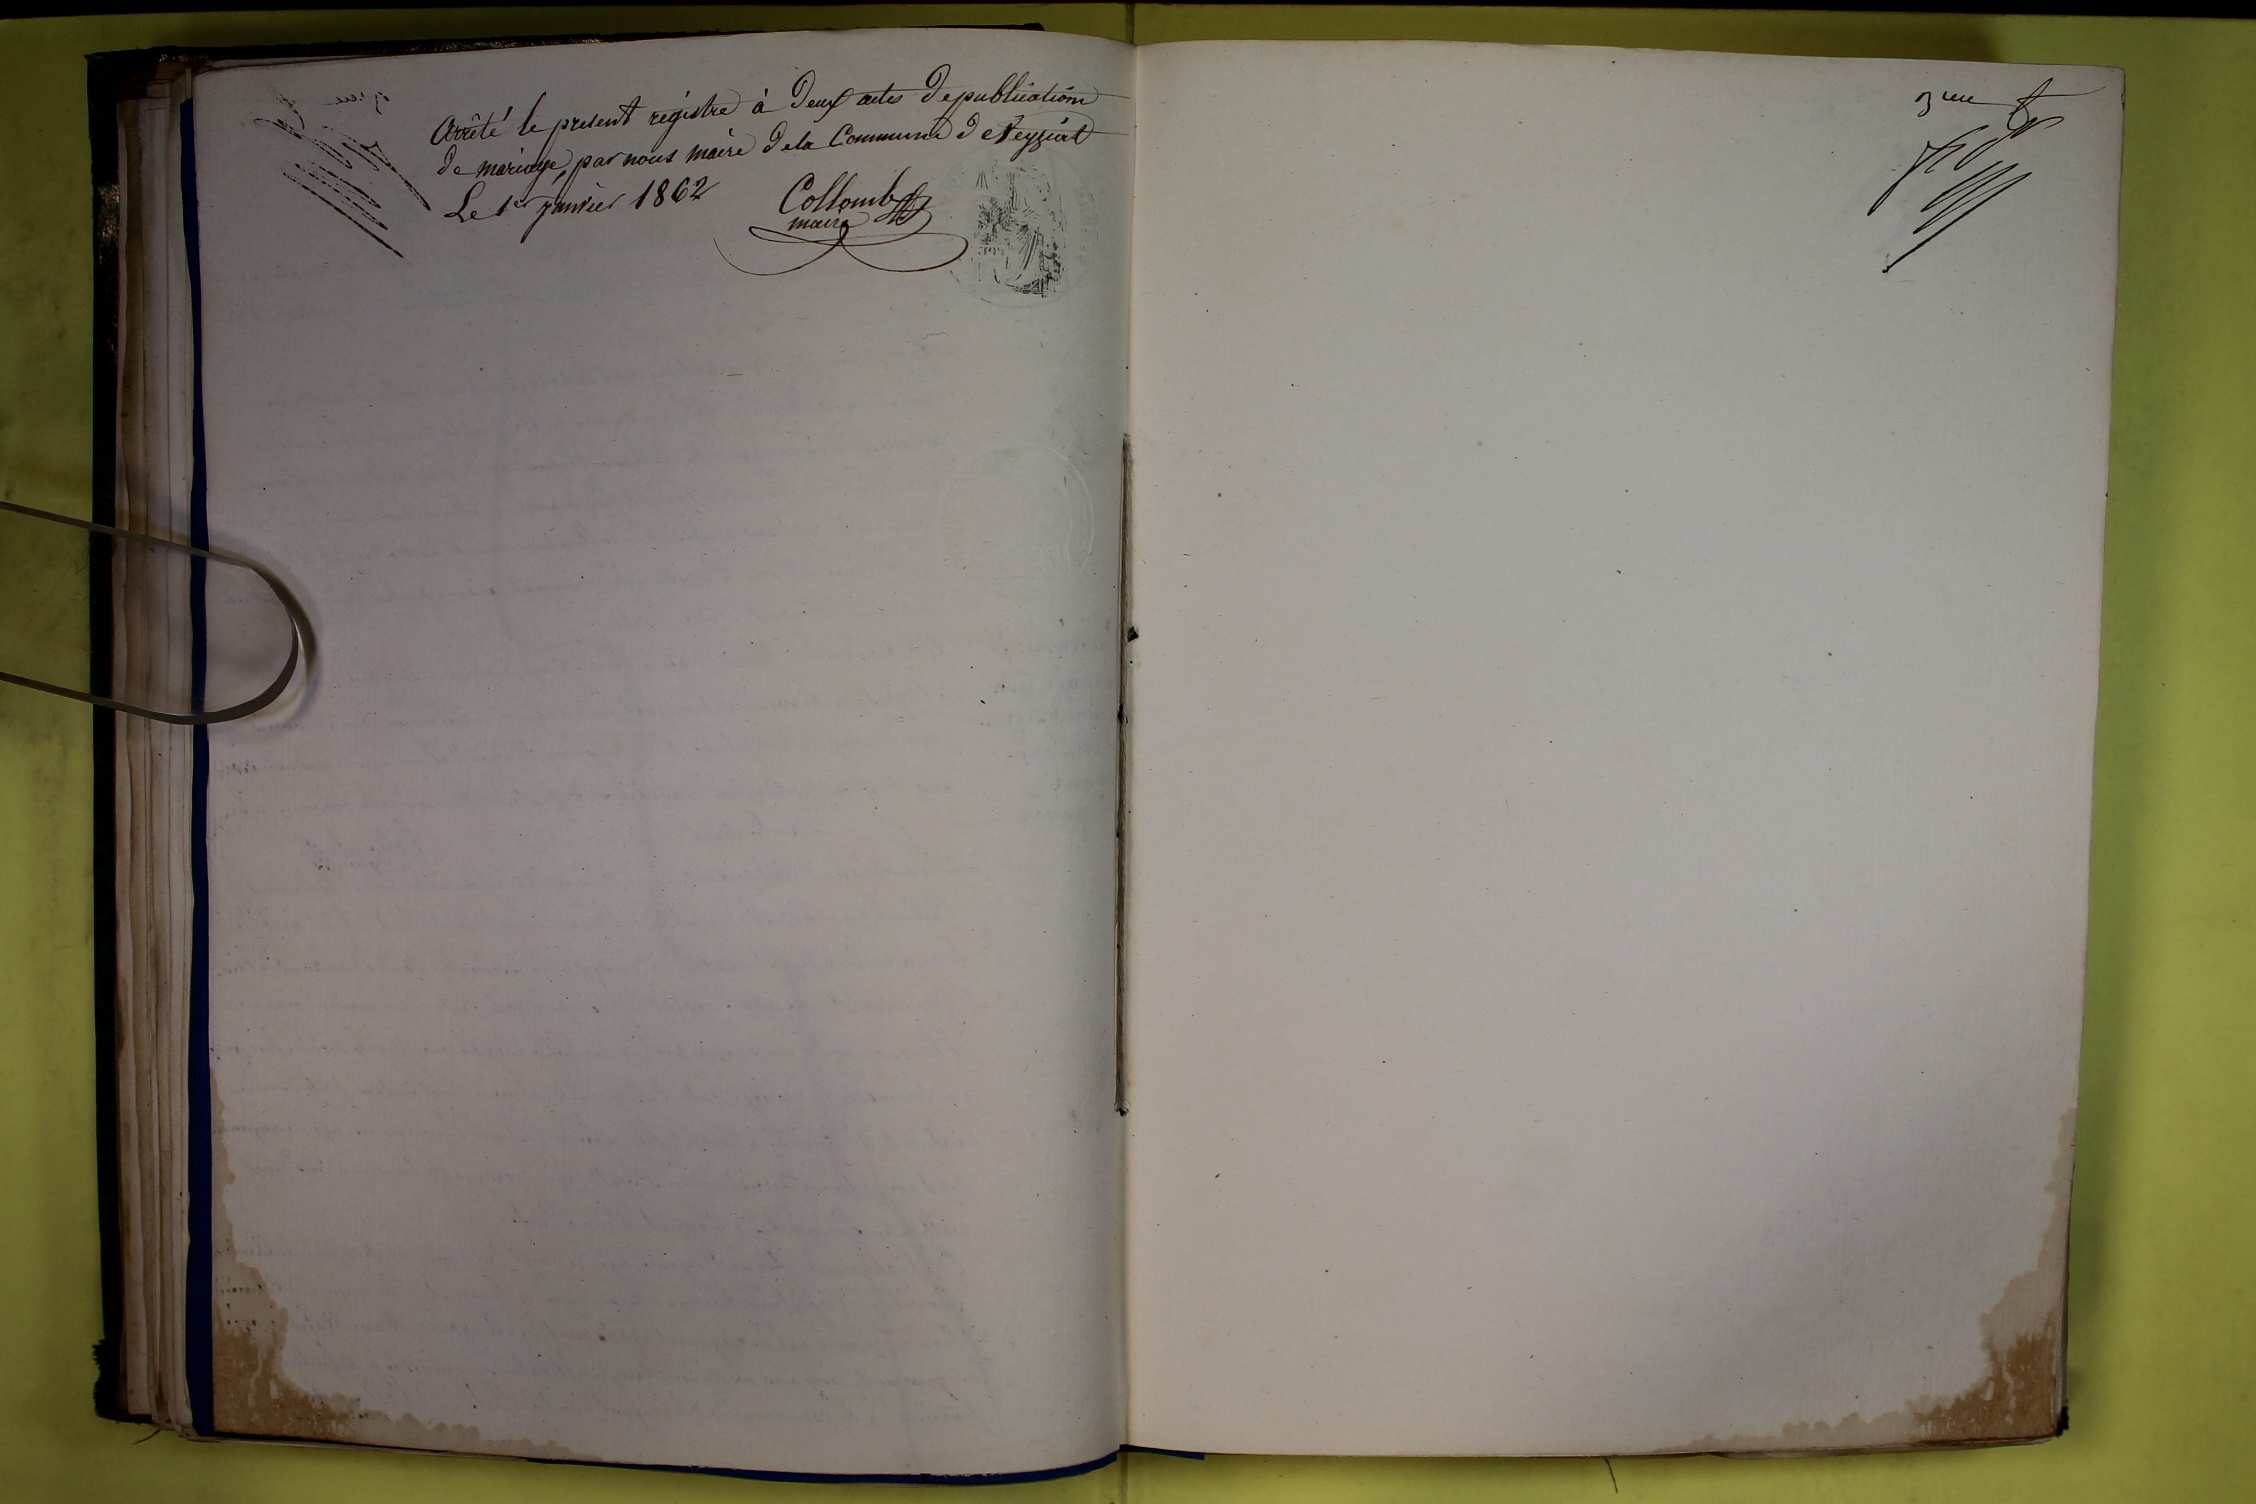 Arrêté le present régistre à Deux actes De publication
De mariage, par nous maire De la Commune De Veyziat
Le 1er janvier 1862
Collomb
maire
3eme